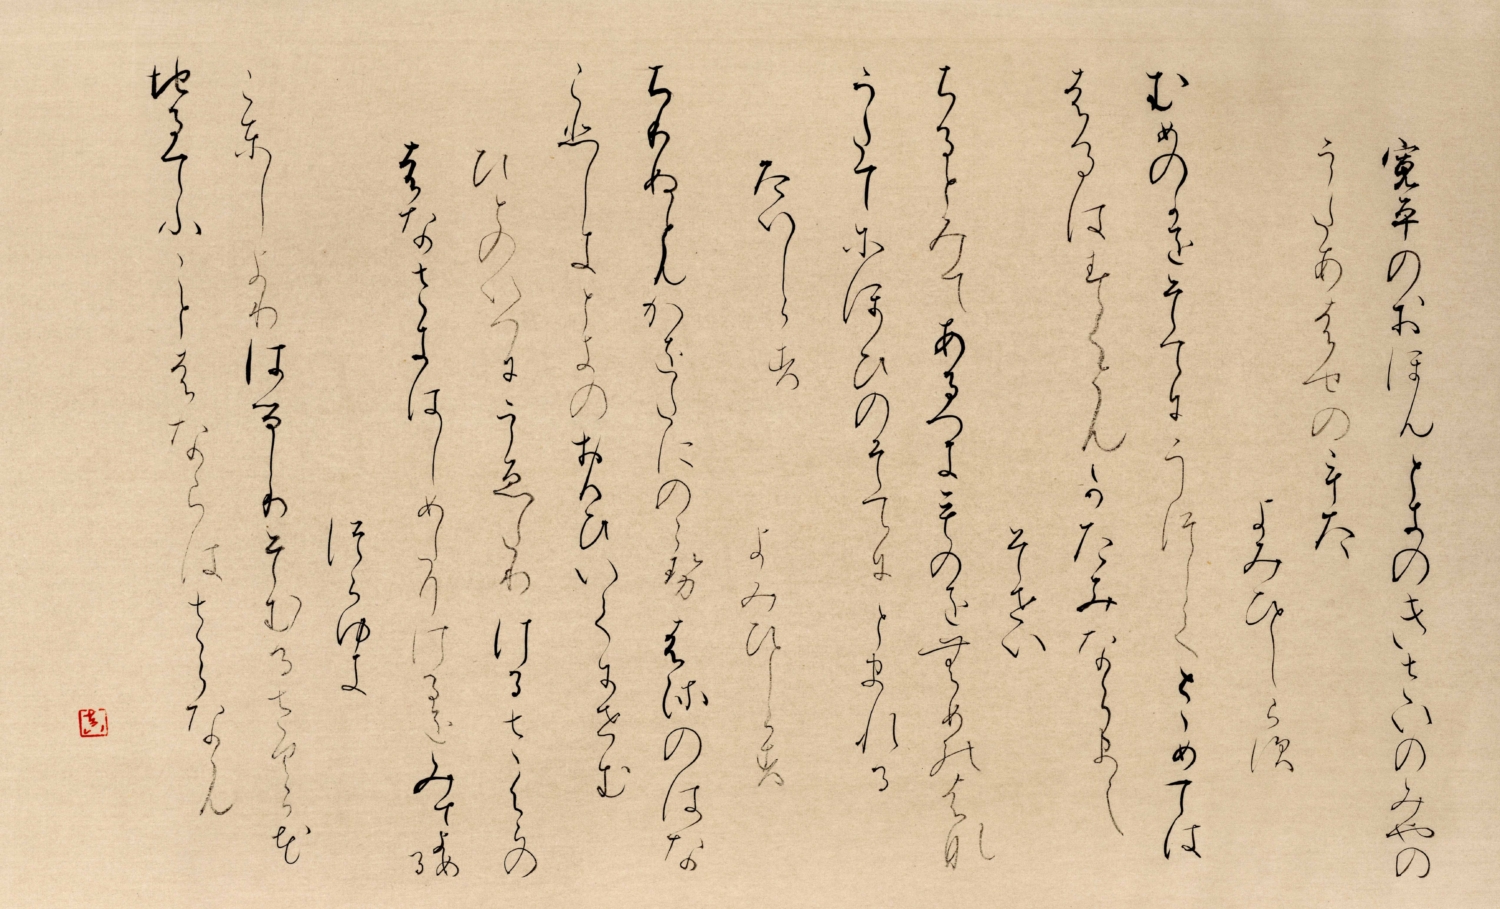 寛平のおほんときのきさいのみやの
うたあはせのうた
よみひとしらす
むめのかをそてにうつしてとゝめては
はるはすくともかたみならまし
そせい
ちるとみてあるへきものをむめのはな
うたてにほひのそてにとまれる
たいしらす
よみひとしらす
ちりぬともかをたにのこせむめのはな
こひしきときのおもひいてにせむ
ひとのいへにうゑたりけるさくらの
はなさきはしめたりけるをみてよめる
つらゆき
ことしよりはるしりそむるさくら花
ちるてふことはならはさらなん